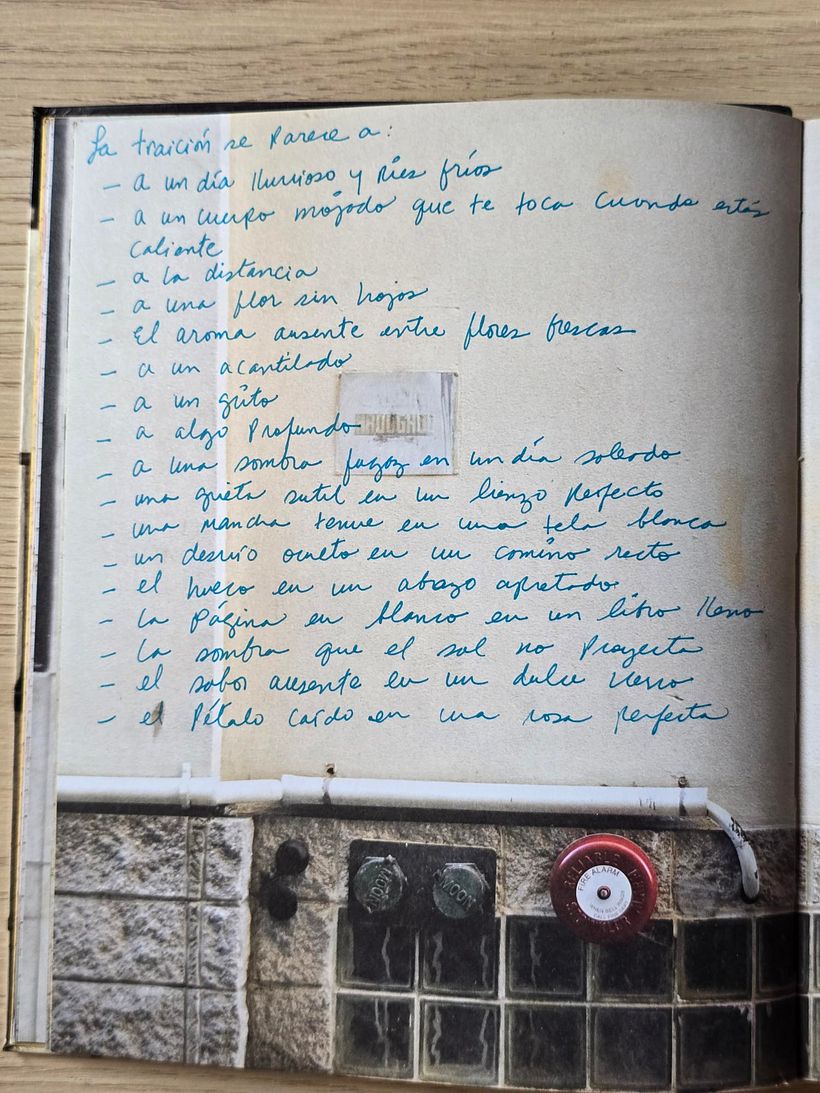 La traición se parece a:
- a un día lluvioso y pies fríos
- a un cuerpo mojado que te toca cuando estás
caliente
- a la distancia
- a una flor sin hojas
- El aroma ausente entre flores frescas
- a un acantilado
- a un grito
- a algo Profundo
- a una sombra fugaz en un día soleado
- una grieta sutil en un lienzo perfecto
- una mancha tenue en una tela blanca
- un desvío oculto en un camino recto
- el hueco en un abrazo apretado
- la Página en blanco en un libro lleno
- la sombra que el sol no Proyecta
- el sabor ausente en un dulce
- el Pétalo caído en una rosa perfecta
MOON
MOON
FIRE ALARM
WHEN BELL RINGS
CALL FIRE DEPT